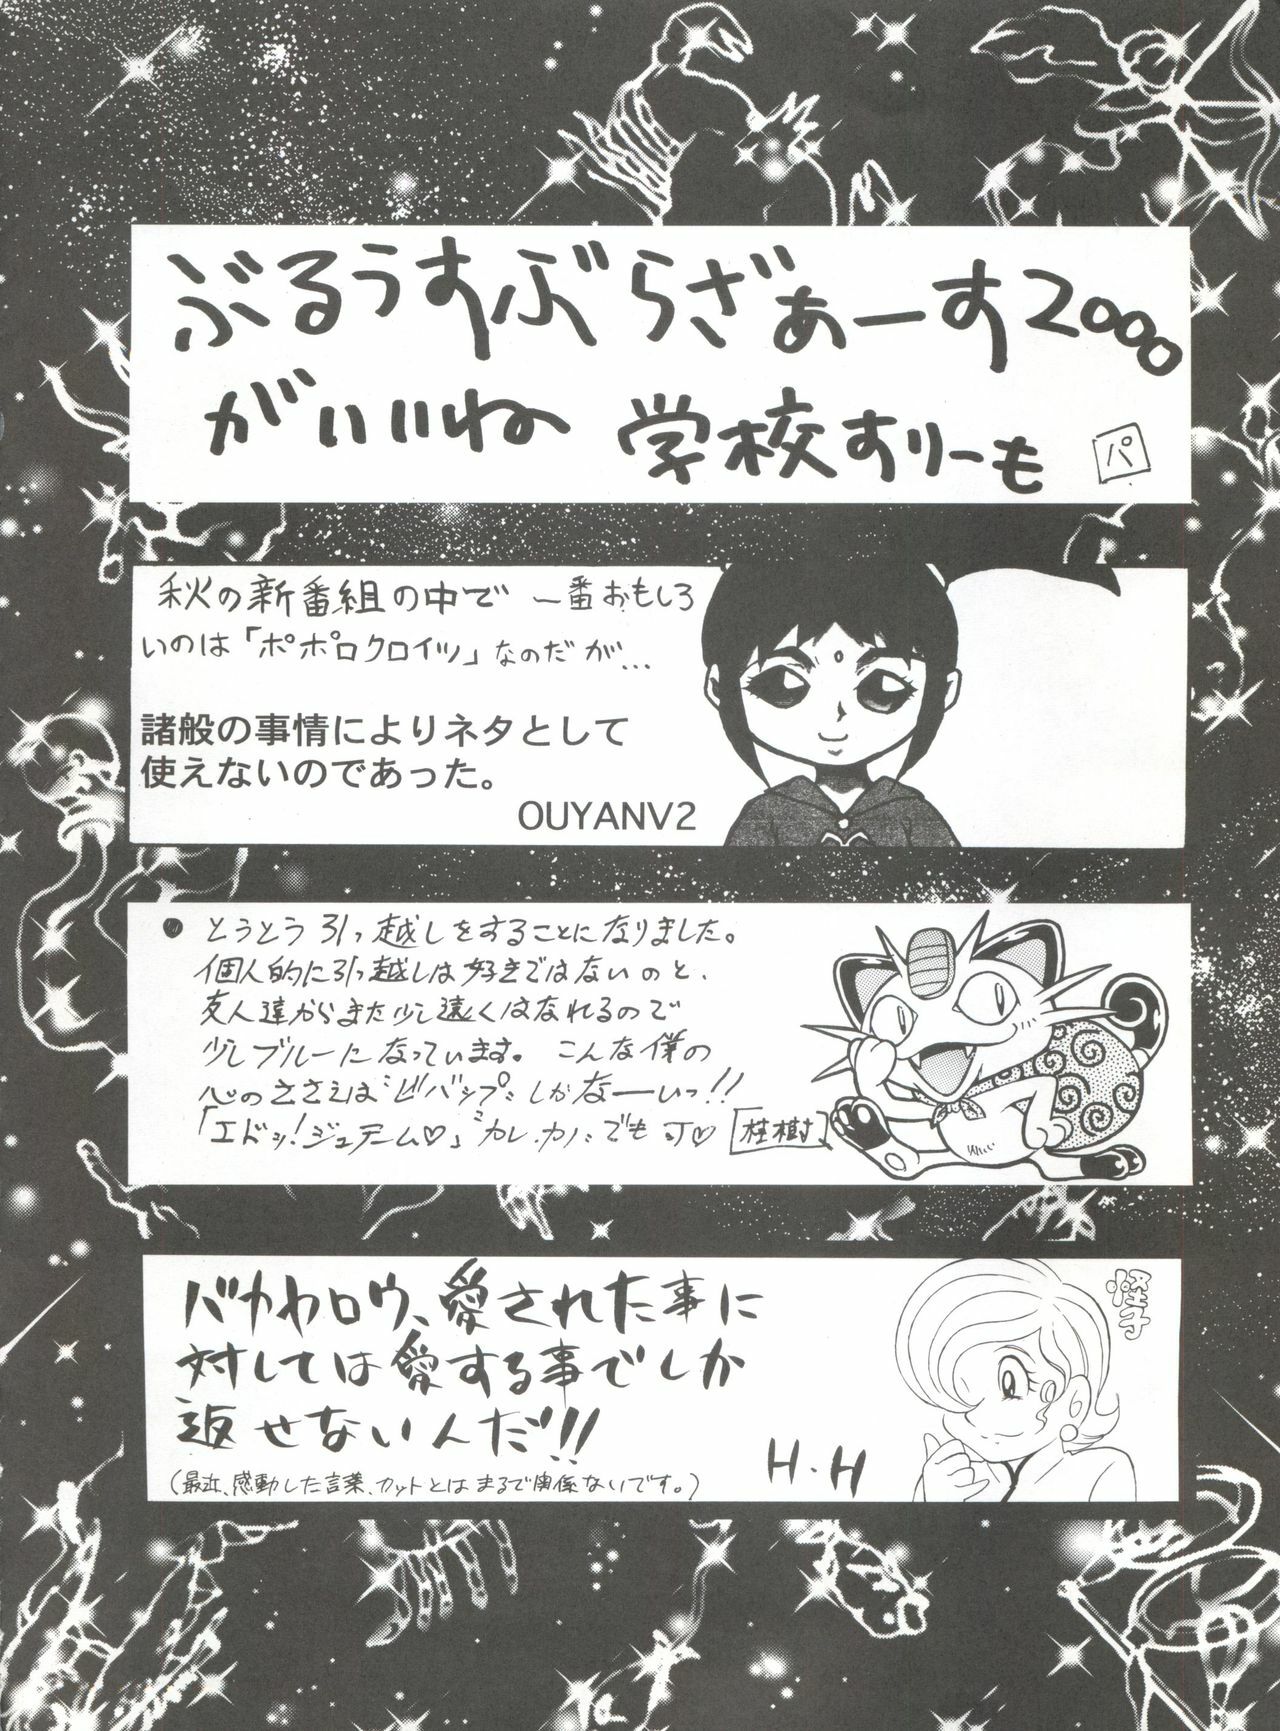 ぶるうすぶらざぁーす2000
がいいね 学校すりーも
パ
秋の新番組の中で 一番おもしろ
いのは「ポポロクロイツ」なのだが…
諸般の事情によりネタとして
使えないのであった。
OUYANV2
● とうとう引っ越しをすることになりました。
個人的に引っ越しは好きではないのと、
友人達からまた少し遠くはなれるので
少しブルーになっています。こんな僕の
心のささえは"ビバップ"しかなーいっ!!
「エドッ!ジュテーム♡」"カレ.カノ"でも可♡ [桂樹]
バカヤロウ、愛された事に
対しては愛する事でしか
返せないんだ!!
H.H
(最近、感動した言葉、カットとはまるで関係ないです。)